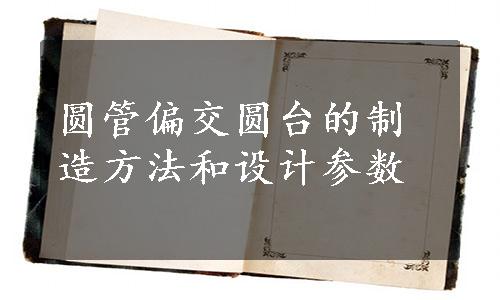 圆管偏交圆台的制
造方法和设计参数